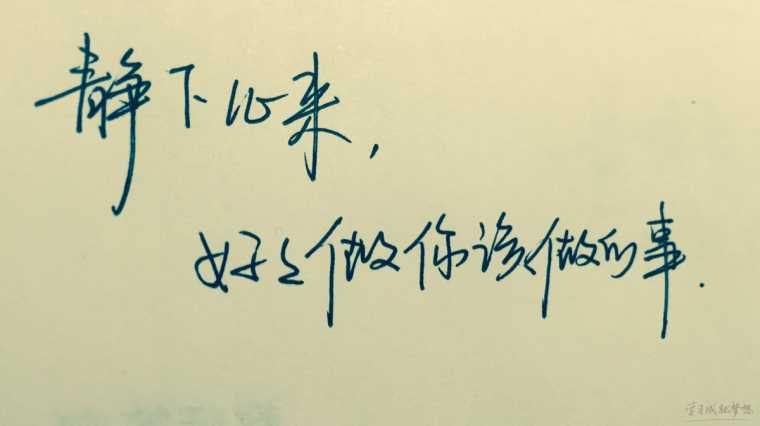 静下心来,
好好做你该做的事.
学习成就梦想